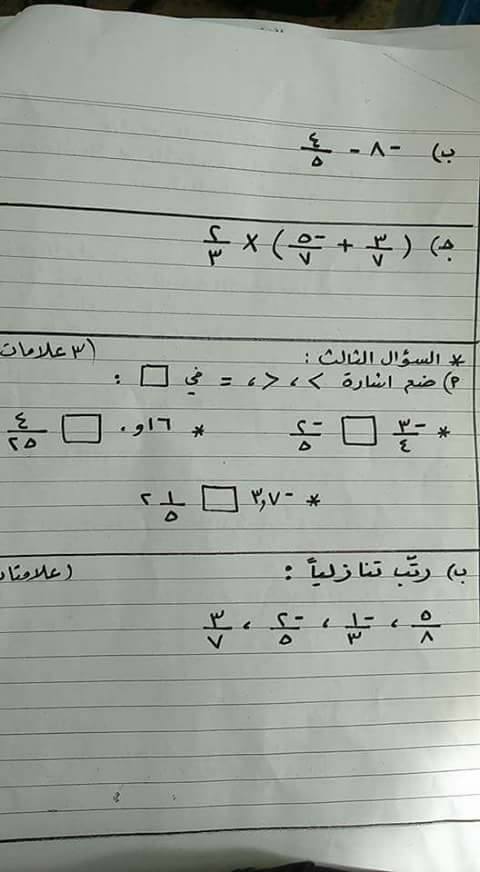 ب) -٨ - ٤/٥
ج) (٣/٧ + -٥/٧) × ٢/٣
* السؤال الثالث : (٣ علامات
٢) ضع اشارة > ، < ، = في □ :
* -٣/٤ □ -٢/٥ * ١٦و٠ □ ٤/٢٥
* -٣,٧ □ ٢ ١/٥
ب) رتّب تنازلياً : (علامتان
٥/٨ ، -١/٣ ، -٢/٥ ، ٣/٧